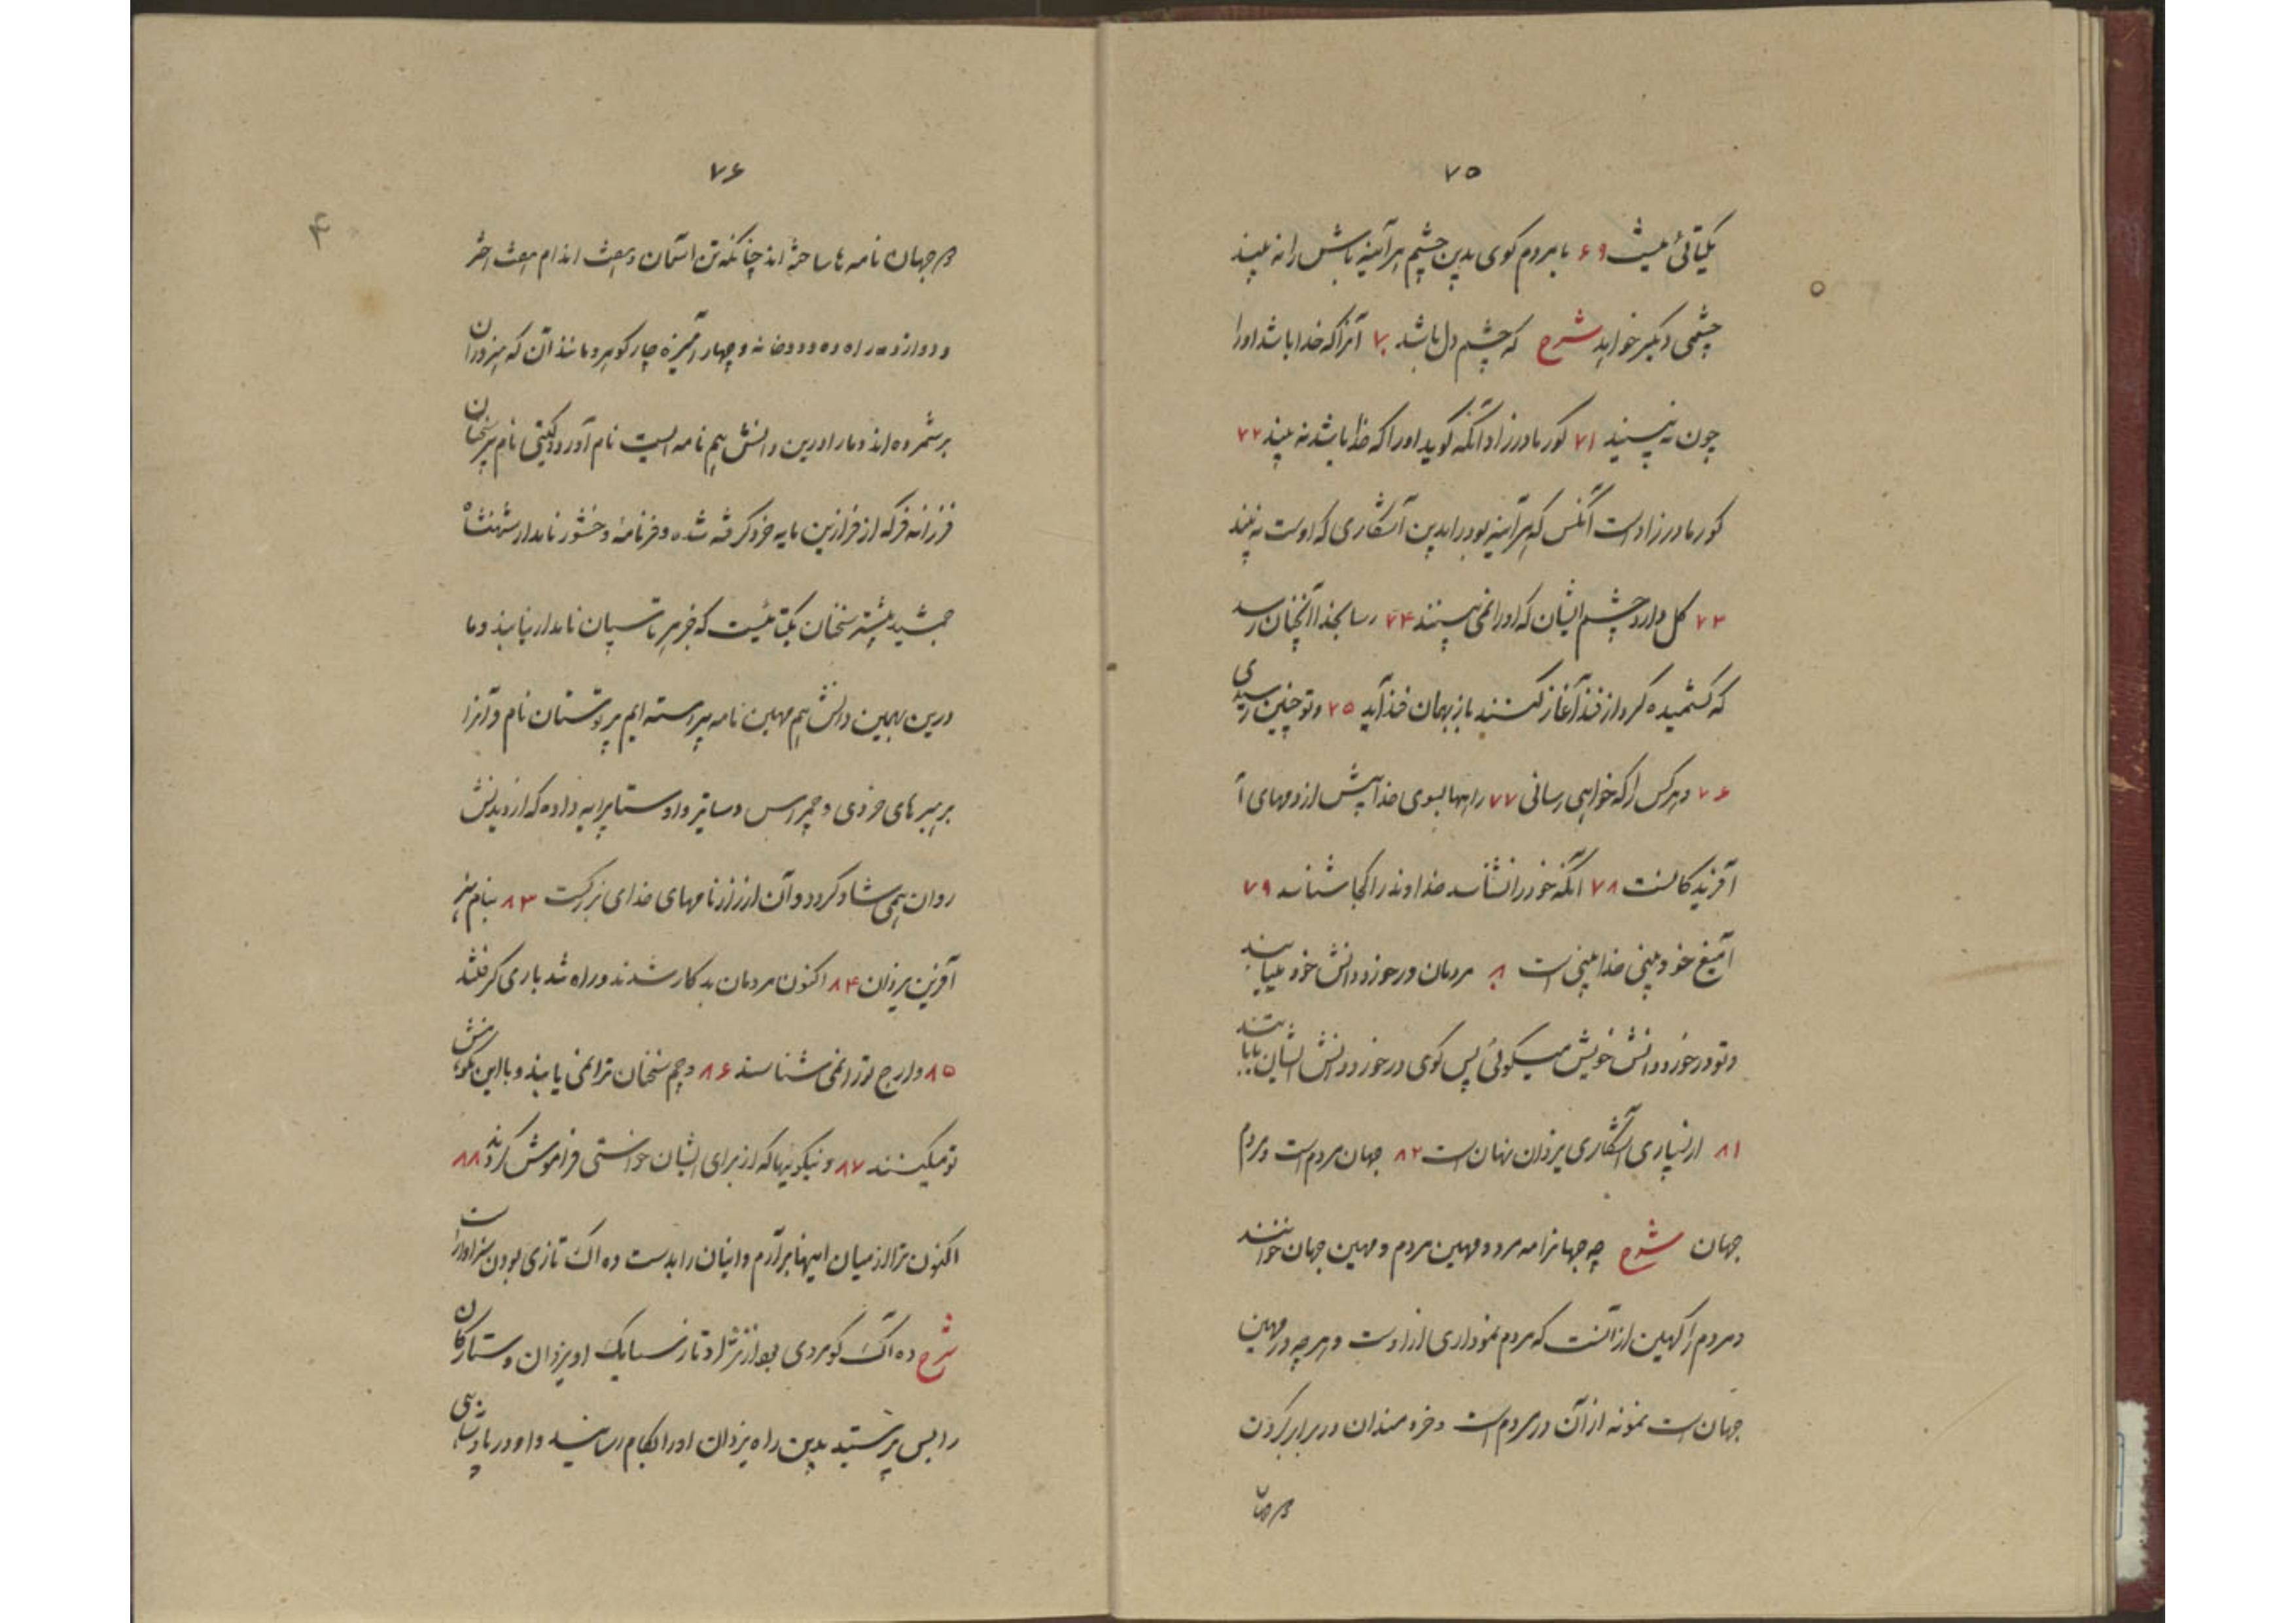 ۷۵
یکتائی نیست ۶۹ با مردم گوی بدین چشم هرآینه باش را نه بیند
چشمی دیگر خواهد شرح که چشم دل باشد ۷۰ آنرا که خدا باشد اورا
چون نه بینید ۷۱ کور مادرزاد آنکه گوید اورا که خدا باشد نه بیند ۷۲
کور مادرزاد است آنکس که هرآینه بود را بدین آشکاری که اوست نه بیند
۷۳ گل دارد چشم ایشان که اورا نمی بینند ۷۴ رسا بخدا آنچنان رسد
که گشتمیده گرد از فذ آغاز کنند باز بهمان فذ آید ۷۵ و تو چنین رسیدی
۷۶ و هرکس را که خواهی رسانی ۷۷ راهها بسوی خدا بیش از دمهای آ
آفریدکانست ۷۸ آنکه خود را نشناسد خداوند را کجا شناسد ۷۹
آمیغ خود بینی خدا بینی است ۸۰ مردمان در خورد دانش خود مییابند
و تو در خورد دانش خویش میگوئی پس گوی در خورد دانش ایشان تا یابند
۸۱ از بسیاری آشکاری یزدان نهان است ۸۲ جهان مردم است و مردم
جهان شرح چه جهانرا مه مرد و مهین مردم و مهین جهان خوانند
و مردم را کهین از آنست که مردم نموداری از اوست و هرچه در مهین
جهان است نمونه از آن در مردم است و خردمندان در برابر کردن
مرد و جهان
۷۶
۴
جهان نامه ها ساخته اند چنانکه تن آسمان و هفت اندام هفت اختر
و دوازده راه ده و دو خانه و چهار آمیزه چار گوهر و مانند آن که هنروران
برشمرده اند و مارا درین دانش هم نامه ایست نام آور در گیتی نام پر سخنان
فرزانه فر که از فرازین پایه خرد گرفته شده و فرنامهٔ وخشور نامدار شهنشاه
جمشید بیشتر سخنان یکتائیست که جز هیر تاسپان نامدار نیابند و ما
درین بهمین دانش هم مهین نامه پیراسته ایم پرتوستان نام و آنرا
برهبرهای خردی و چمرس دساتیر و اوستا پیرایه داده که از دیدنش
روان همی شاد گردد و آن از راز نامهای خدای بزرگست ۸۳ بنام هنر
آفرین یزدان ۸۴ اکنون مردمان بد کار شدند و راه تندباری گرفتند
۸۵ و ارج ترا نمی شناسند ۸۶ و چم سخنان ترا نمی یابند و با این نکوهش
تو میکنند ۸۷ و نیکویها که از برای ایشان خواستی فراموش کردند ۸۸
اکنون ترا از میان اینها برآرم و اینان را بدست ده اک تازی بودن سزاوار است
شرح ده آک گو مردی بود از نژاد تاز سیامک او یزدان و ستارگان
را بس پرستید بدین راه یزدان اورا بکام رسانید و او در پادشاهی